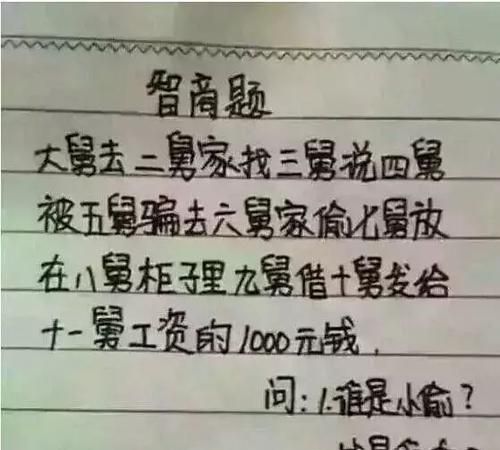 智商题
大舅去二舅家找三舅说四舅
被五舅骗去六舅家偷七舅放
在八舅柜子里九舅借十舅发给
十一舅工资的1000元钱.
问:1.谁是小偷?